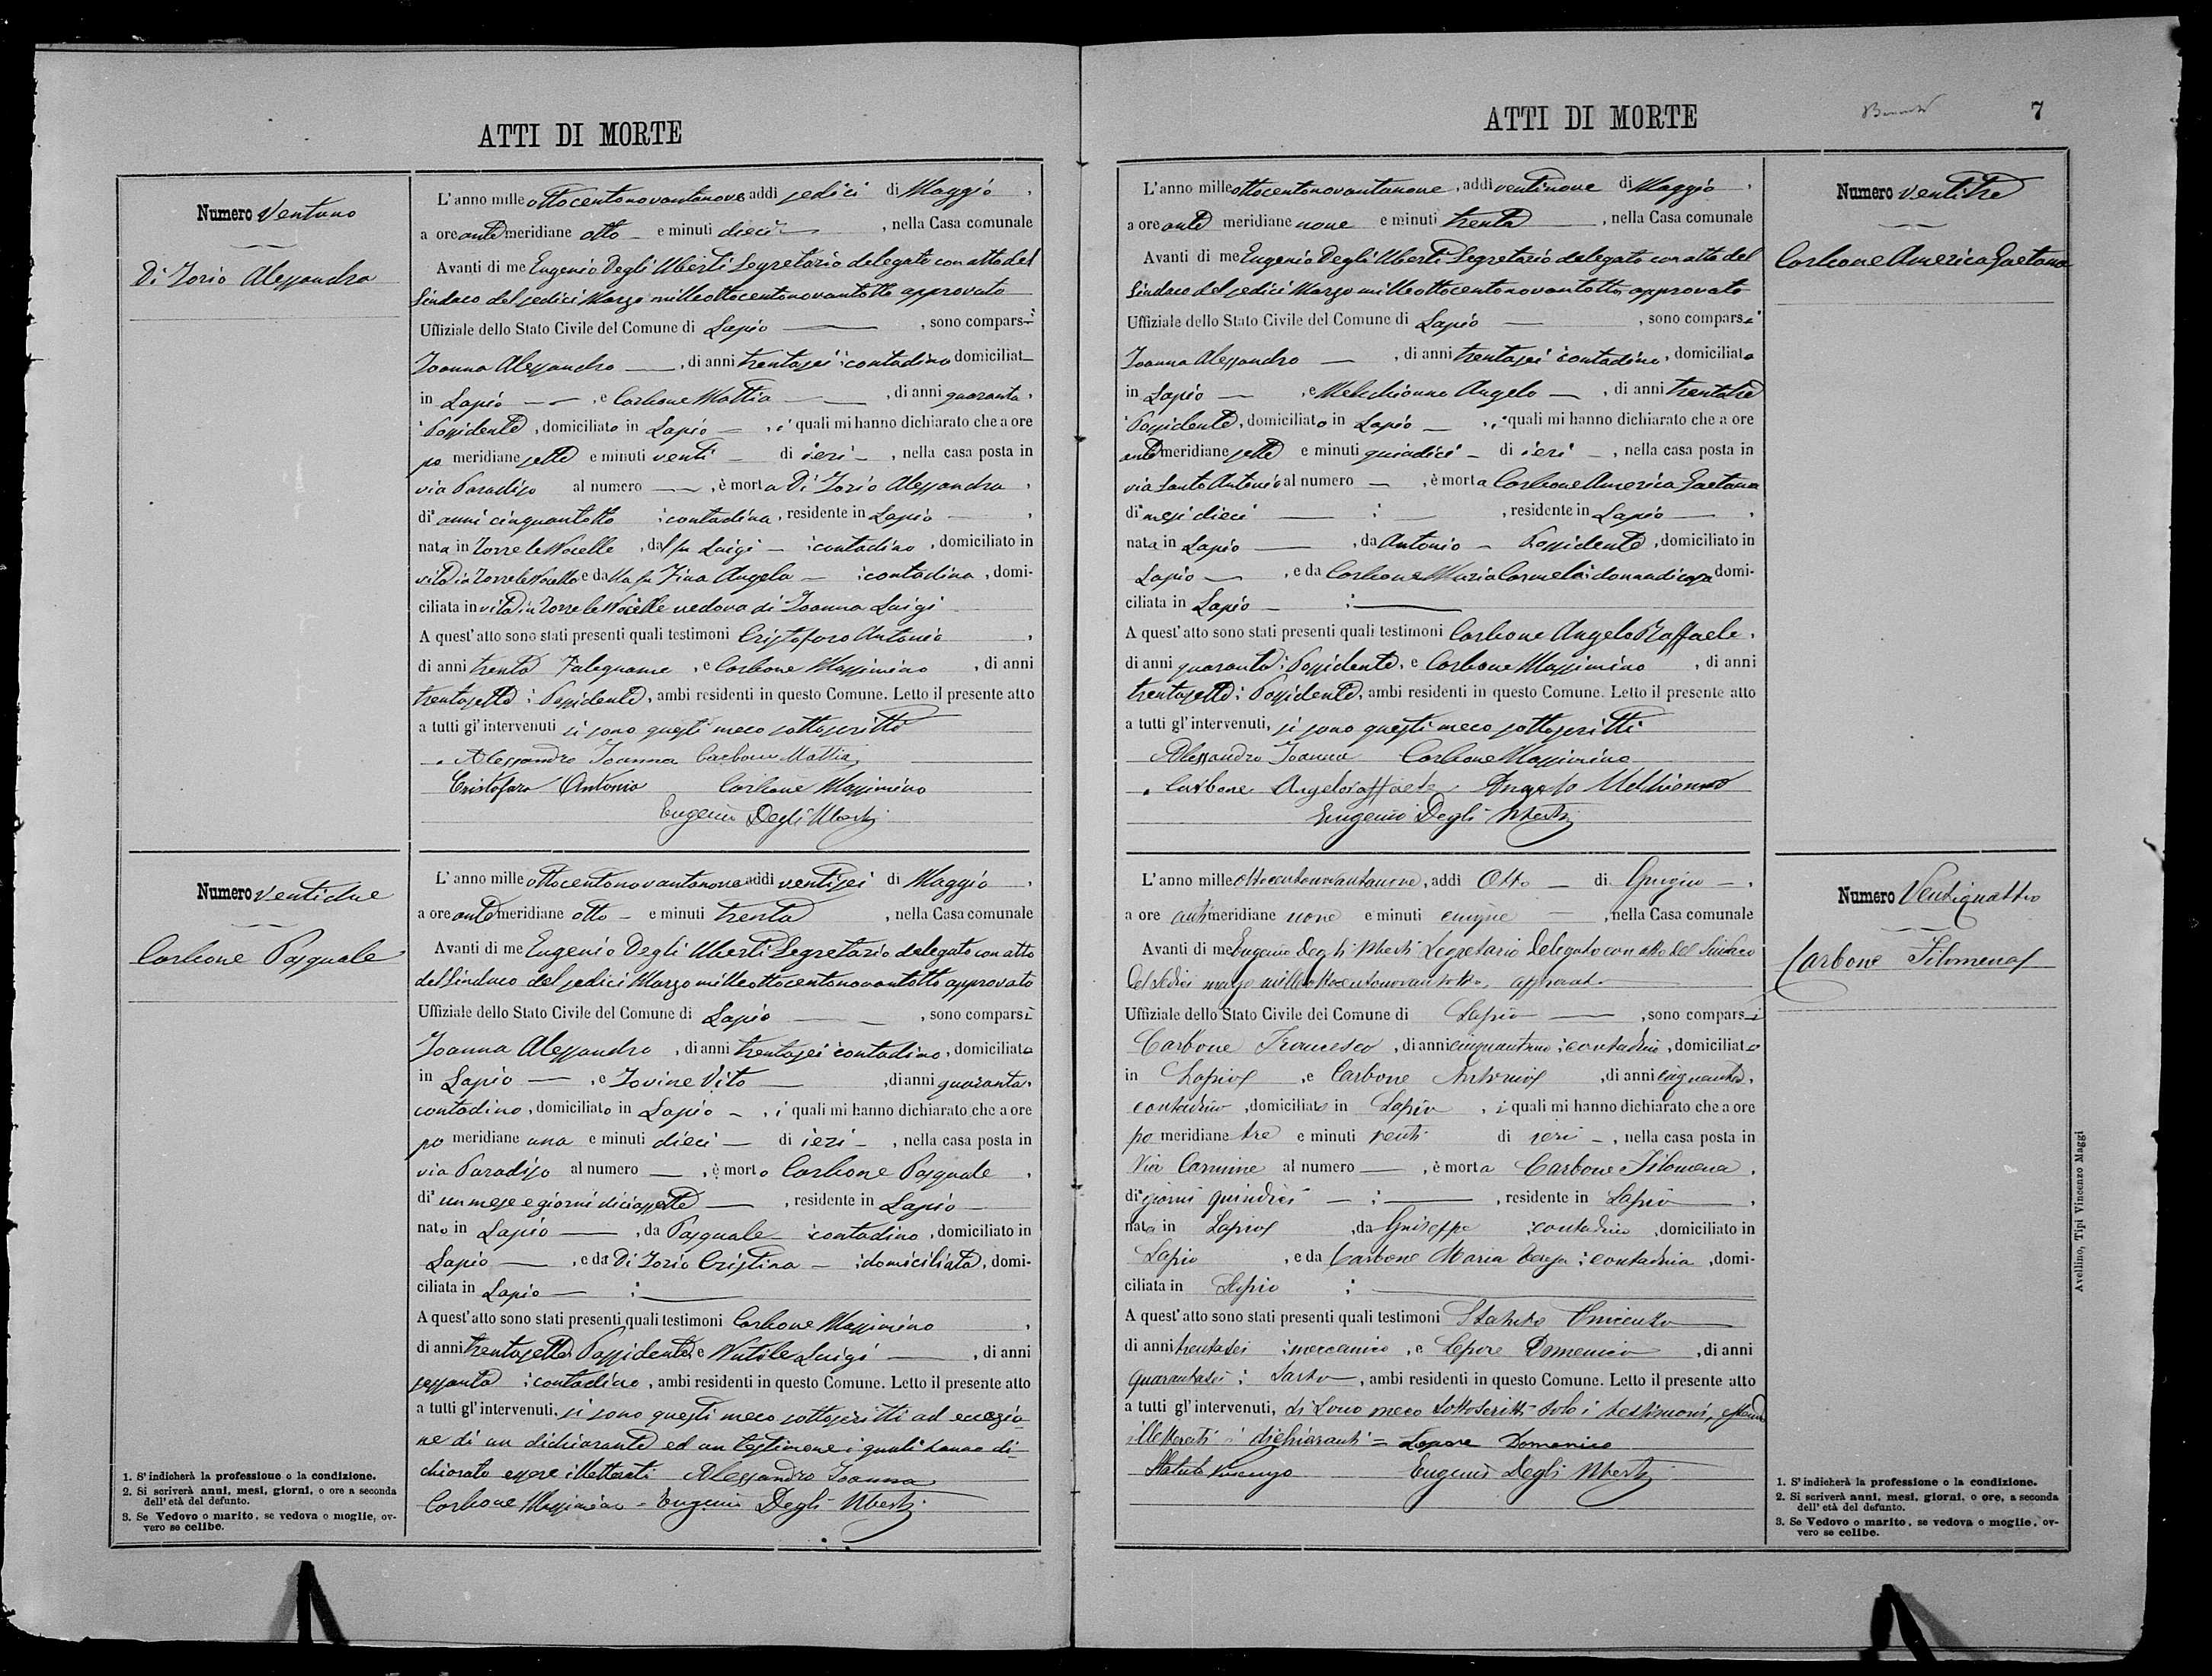 ATTI DI MORTE
Numero Ventuno
Di Iorio Alessandra
L'anno mille ottocentonovantanove addi sedici di Maggio,
a ore antemeridiane otto e minuti dieci, nella Casa comunale
Avanti di me Eugenio Degli Uberti Segretario delegato con atto del
Sindaco del sedici Marzo milleottocentonovantotto approvato
Uffiziale dello Stato Civile del Comune di Lapio, sono comparsi
Ioanna Alessandro, di anni trentasei contadino domiciliat
in Lapio, e Carbone Mattia, di anni quaranta,
Possidente, domiciliato in Lapio, i quali mi hanno dichiarato che a ore
po meridiane sette e minuti venti di ieri, nella casa posta in
via Paradiso al numero, è morta Di Iorio Alessandra,
di anni cinquantotto contadina, residente in Lapio,
nata in Torre le Nocelle, dal fu Luigi contadino, domiciliato in
vita in Torre le Nocelle e da lla fu Zina Angela contadina, domi-
ciliata in vita in Torre le Nocelle vedova di Ioanna Luigi
A quest'atto sono stati presenti quali testimoni Cristofaro Antonio,
di anni trenta Falegname, e Carbone Massimino, di anni
trentasette Possidente, ambi residenti in questo Comune. Letto il presente atto
a tutti gl'intervenuti si sono questi meco sottoscritti
Alessandro Ioanna Carbone Mattia
Cristofaro Antonio Carbone Massimino
Eugenio Degli Uberti
Numero Ventidue
Carbone Pasquale
L'anno mille ottocentonovantanove addi ventisei di Maggio,
a ore antemeridiane otto e minuti trenta, nella Casa comunale
Avanti di me Eugenio Degli Uberti Segretario delegato con atto
del Sindaco del sedici Marzo milleottocentonovantotto approvato
Uffiziale dello Stato Civile del Comune di Lapio, sono comparsi
Ioanna Alessandro, di anni trentasei contadino, domiciliato
in Lapio, e Iovine Vito, di anni quaranta,
contadino, domiciliato in Lapio, i quali mi hanno dichiarato che a ore
po meridiane una e minuti dieci di ieri, nella casa posta in
via Paradiso al numero, è morto Carbone Pasquale,
di un mese e giorni diciassette, residente in Lapio
nato in Lapio, da Pasquale contadino, domiciliato in
Lapio, e da Di Iorio Cristina domiciliata, domi-
ciliata in Lapio
A quest'atto sono stati presenti quali testimoni Carbone Massimino,
di anni trentasette Possidente, e Nutile Luigi, di anni
sessanta contadino, ambi residenti in questo Comune. Letto il presente atto
a tutti gl'intervenuti, si sono questi meco sottoscritti ad eccezio-
ne di un dichiarante ed un testimone i quali hanno di-
chiarato essere illetterati Alessandro Ioanna
Carbone Massimino = Eugenio Degli Uberti
1. S'indicherà la professione o la condizione.
2. Si scriverà anni, mesi, giorni, o ore a seconda
dell'età del defunto.
3. Se Vedovo o marito, se vedova o moglie, ov-
vero se celibe.
ATTI DI MORTE
7
Numero ventitre
Carbone America Gaetana
L'anno mille ottocentonovantanove, addi ventinove di Maggio,
a ore ante meridiane nove e minuti trenta, nella Casa comunale
Avanti di me Eugenio Degli Uberti Segretario delegato con atto del
Sindaco del sedici Marzo milleottocentonovantotto approvato
Uffiziale dello Stato Civile del Comune di Lapio, sono comparsi
Ioanna Alessandro, di anni trentasei contadino, domiciliato
in Lapio, e Melchionno Angelo, di anni trentatre
Possidente, domiciliato in Lapio, i quali mi hanno dichiarato che a ore
ante meridiane sette e minuti quindici di ieri, nella casa posta in
via Santo Antonio al numero, è morta Carbone America Gaetana
di mesi dieci, residente in Lapio,
nata in Lapio, da Antonio Possidente, domiciliato in
Lapio, e da Carbone Maria Carmela donna di casa domi-
ciliata in Lapio
A quest'atto sono stati presenti quali testimoni Carbone Angelo Raffaele,
di anni quaranta Possidente, e Carbone Massimino, di anni
trentasette Possidente, ambi residenti in questo Comune. Letto il presente atto
a tutti gl'intervenuti, si sono questi meco sottoscritti
Alessandro Ioanna Carbone Massimino
Carbone Angeloraffaele Angelo Melchionno
Eugenio Degli Uberti
Numero Ventiquattro
Carbone Filomena
L'anno mille ottocentonovantanove, addi Otto di Giugno,
a ore antimeridiane nove e minuti cinque, nella Casa comunale
Avanti di me Eugenio Degli Uberti Segretario Delegato con atto del Sindaco
del sedici marzo milleottocentonovantotto, approvato
Uffiziale dello Stato Civile del Comune di Lapio, sono comparsi
Carbone Francesco, di anni cinquantuno contadino, domiciliato
in Lapio, e Carbone Antonio, di anni cinquanta,
contadino, domiciliato in Lapio, i quali mi hanno dichiarato che a ore
po meridiane tre e minuti venti di ieri, nella casa posta in
Via Carmine al numero, è morta Carbone Filomena,
di giorni quindici, residente in Lapio,
nata in Lapio, da Giuseppe contadino, domiciliato in
Lapio, e da Carbone Maria Teresa contadina, domi-
ciliata in Lapio
A quest'atto sono stati presenti quali testimoni Statuto Vincenzo
di anni trentasei meccanico, e Lepore Domenico, di anni
quarantasei Sarto, ambi residenti in questo Comune. Letto il presente atto
a tutti gl'intervenuti, si sono meco sottoscritti solo i testimoni, essendo
illetterati i dichiaranti = Lepore Domenico
Statuto Vincenzo Eugenio Degli Uberti
1. S'indicherà la professione o la condizione.
2. Si scriverà anni, mesi, giorni, o ore, a seconda
dell'età del defunto.
3. Se Vedovo o marito, se vedova o moglie, ov-
vero se celibe.
Avellino, Tipi Vincenzo Maggi